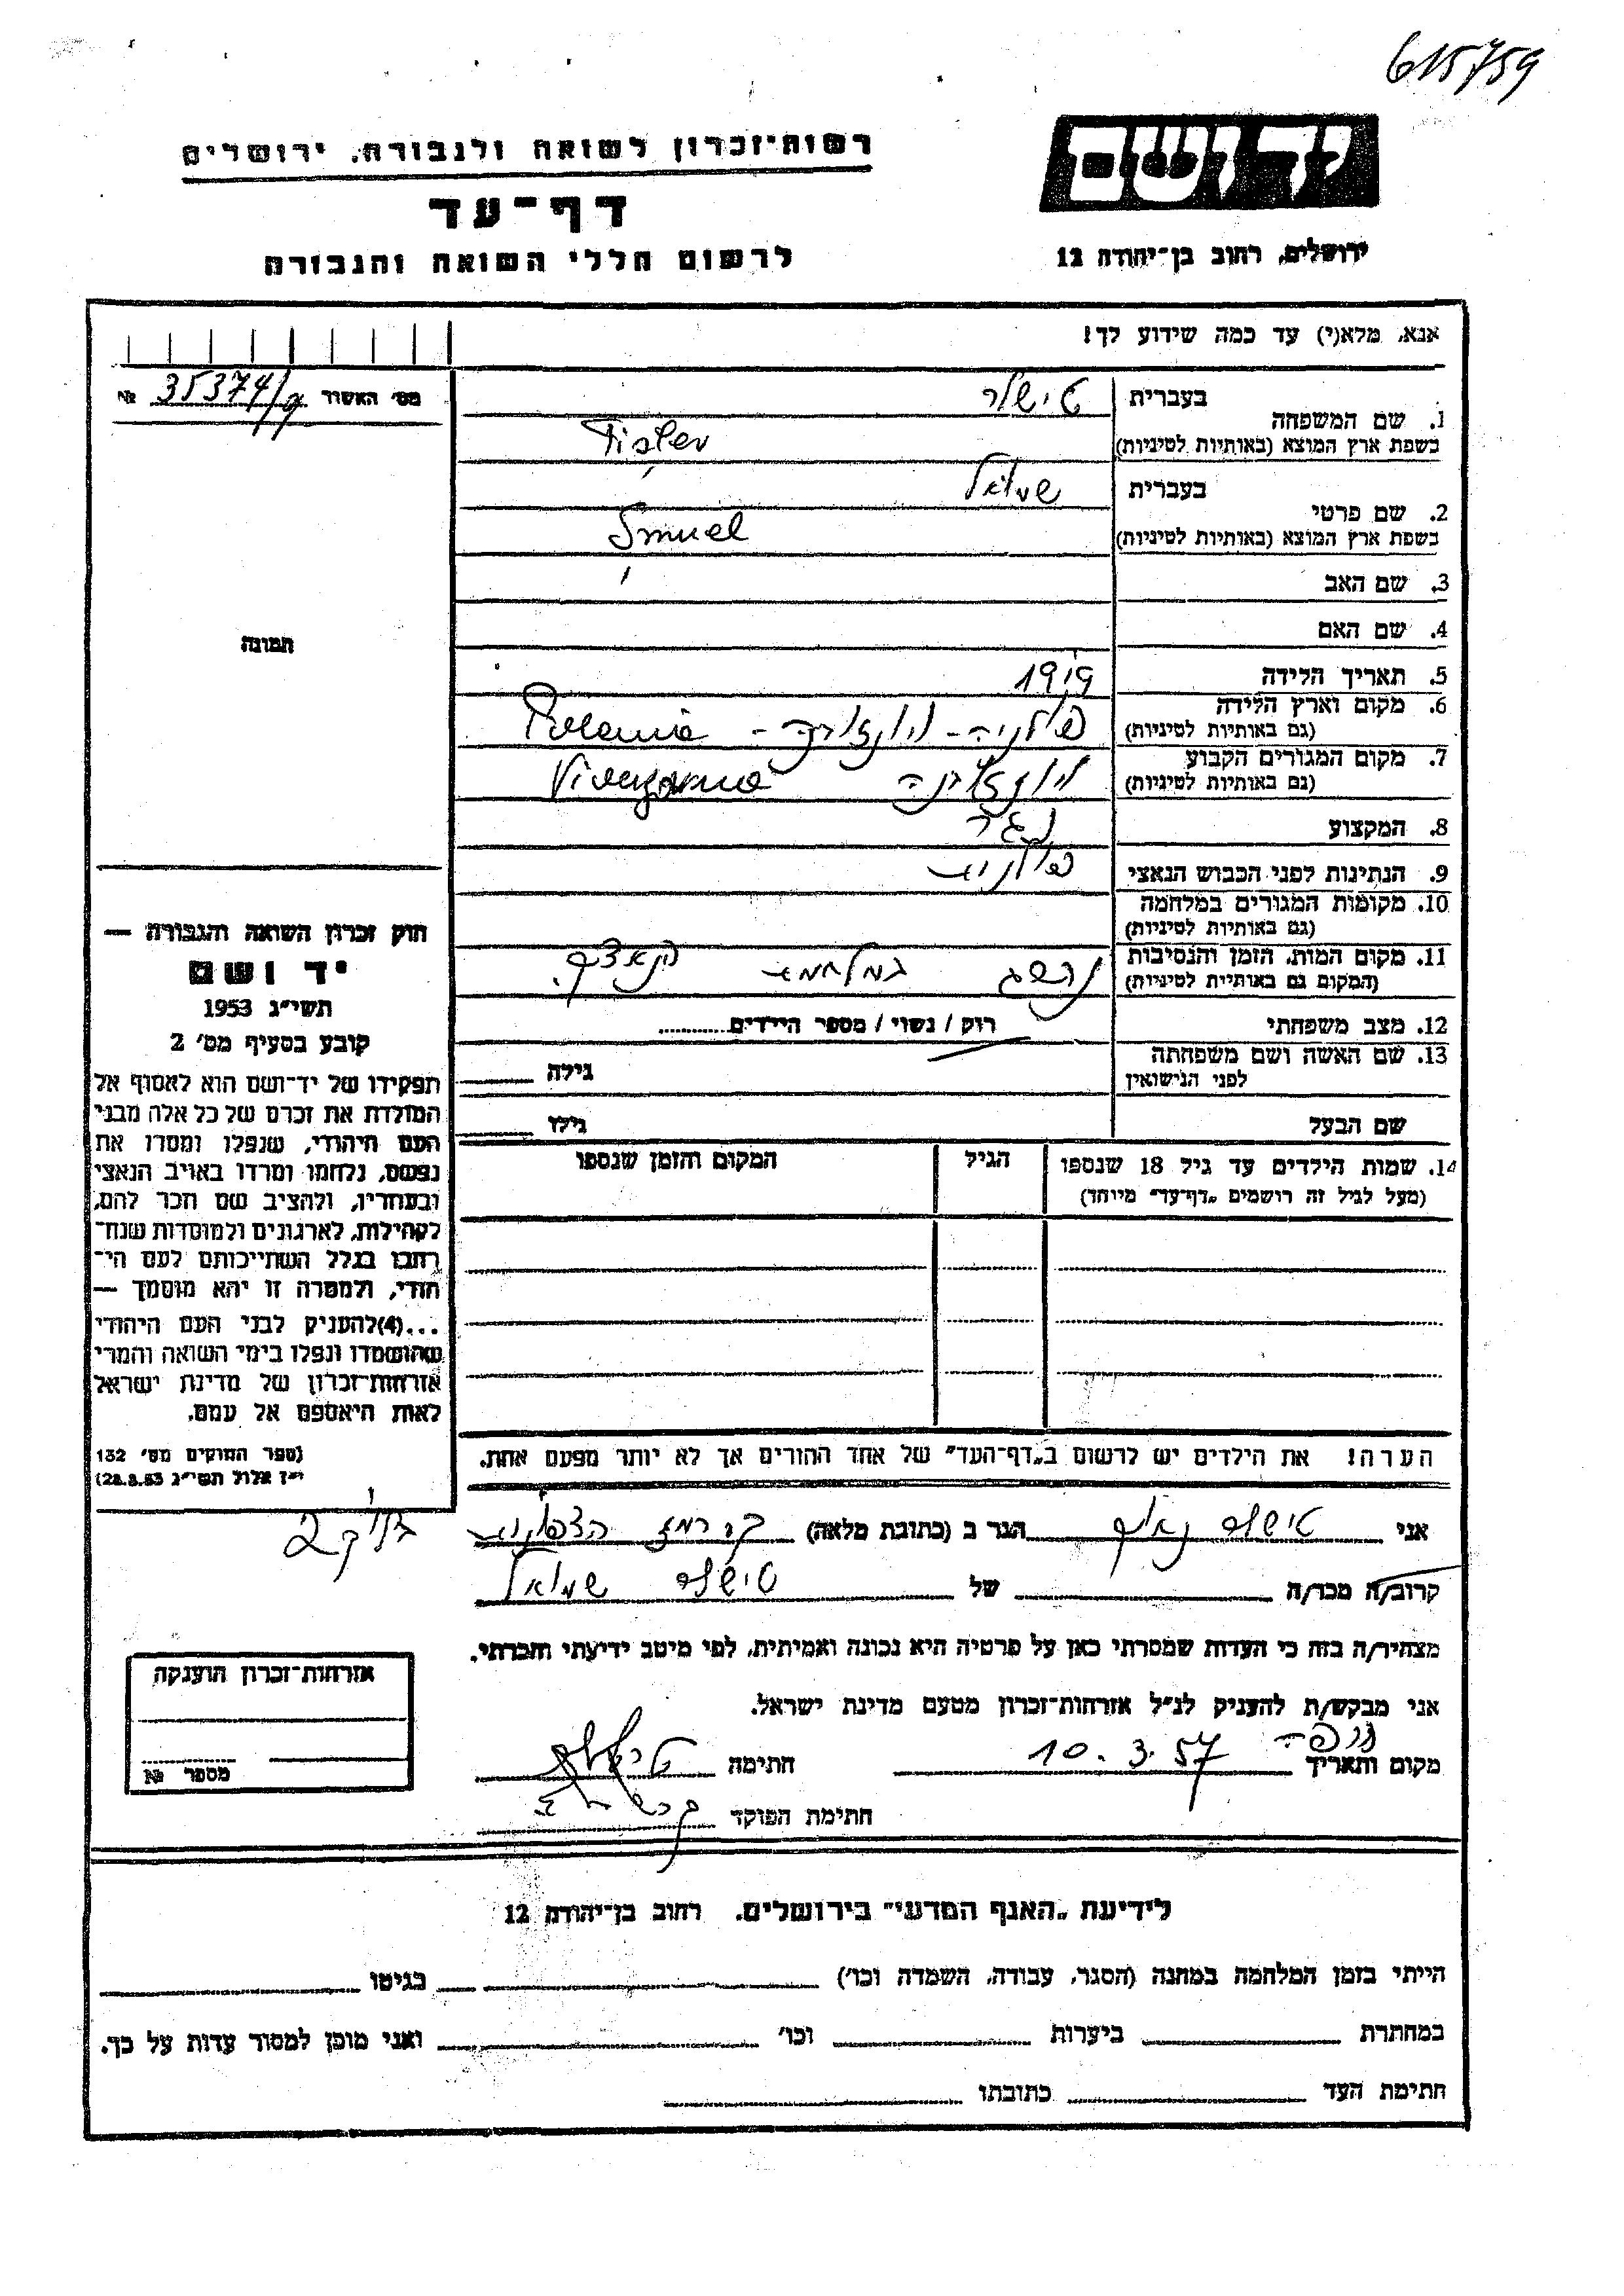 615759
יד ושם
רשות־זכרון לשואה ולגבורה, ירושלים
דף־עד
לרשום חללי השואה והגבורה
ירושלים, רחוב בן־יהודה 12
אנא, מלא(י) עד כמה שידוע לך!
מס׳ האשור 35374/g №
בעברית טישלר
1. שם המשפחה
בשפת ארץ המוצא (באותיות לטיניות) Tisler
בעברית שמואל
2. שם פרטי
בשפת ארץ המוצא (באותיות לטיניות) Smuel
3. שם האב
4. שם האם
תמונה
5. תאריך הלידה 1919
6. מקום וארץ הלידה
(גם באותיות לטיניות) פולניה - Polania
7. מקום המגורים הקבוע
(גם באותיות לטיניות)
8. המקצוע נגר
9. הנתינות לפני הכבוש הנאצי פולנית
10. מקומות המגורים במלחמה
(גם באותיות לטיניות)
11. מקום המות, הזמן והנסיבות
(המקום גם באותיות לטיניות) נהרג במלחמת
12. מצב משפחתי רוק / נשוי / מספר הילדים
13. שם האשה ושם משפחתה
לפני הנישואין גילה
שם הבעל גילו
14. שמות הילדים עד גיל 18 שנספו הגיל המקום והזמן שנספו
(מעל לגיל זה רושמים „דף־עד״ מיוחד)
הערה! את הילדים יש לרשום ב„דף־העד״ של אחד ההורים אך לא יותר מפעם אחת.
חוק זכרון השואה והגבורה —
יד ושם
תשי״ג 1953
קובע בסעיף מס׳ 2
תפקידו של יד־ושם הוא לאסוף אל
המולדת את זכרם של כל אלה מבני
העם היהודי, שנפלו ומסרו את
נפשם, נלחמו ומרדו באויב הנאצי
ובעוזריו, ולהציב שם וזכר להם,
לקהילות, לארגונים ולמוסדות שנח־
רבו בגלל השתייכותם לעם הי־
הודי, ולמטרה זו יהא מוסמך —
...(4)להעניק לבני העם היהודי
שהושמדו ונפלו בימי השואה והמרי
אזרחות־זכרון של מדינת ישראל
לאות היאספם אל עמם.
(ספר החוקים מס׳ 132
י״ז אלול תשי״ג 28.8.53)
אני טישלר הגר ב (כתובת מלאה)
קרוב/ה מכר/ה של טישלר שמואל
מצהיר/ה בזה כי העדות שמסרתי כאן על פרטיה היא נכונה ואמיתית, לפי מיטב ידיעתי והכרתי.
אני מבקש/ת להעניק לנ״ל אזרחות־זכרון מטעם מדינת ישראל.
מקום ותאריך חיפה 10.3.57 חתימה
חתימת הפוקד
אזרחות־זכרון הוענקה
מספר №
לידיעת „האגף המדעי״ בירושלים, רחוב בן־יהודה 12
הייתי בזמן המלחמה במחנה (הסגר, עבודה, השמדה וכו׳) בגיטו
במחתרת ביערות וכו׳ ואני מוכן למסור עדות על כך.
חתימת העד כתובתו